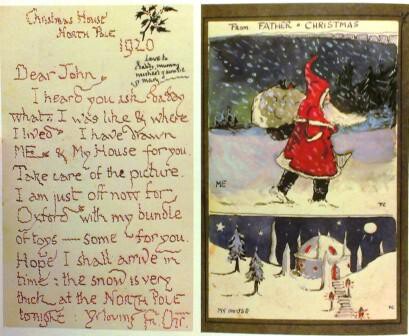 Christmas House
NORTH POLE
1920
Love to
daddy, mummy
michael & auntie
& mary
Dear John,
I heard you ask daddy
what I was like & where
I lived. I have drawn
ME & My House for you.
Take care of the picture.
I am just off now for
Oxford with my bundle
of toys — some for you.
Hope I shall arrive in
time: the snow is very
thick at the NORTH POLE
tonight: Yr loving Fr. Chr.
From FATHER • CHRISTMAS
ME
FC
MY HOUSE
FC